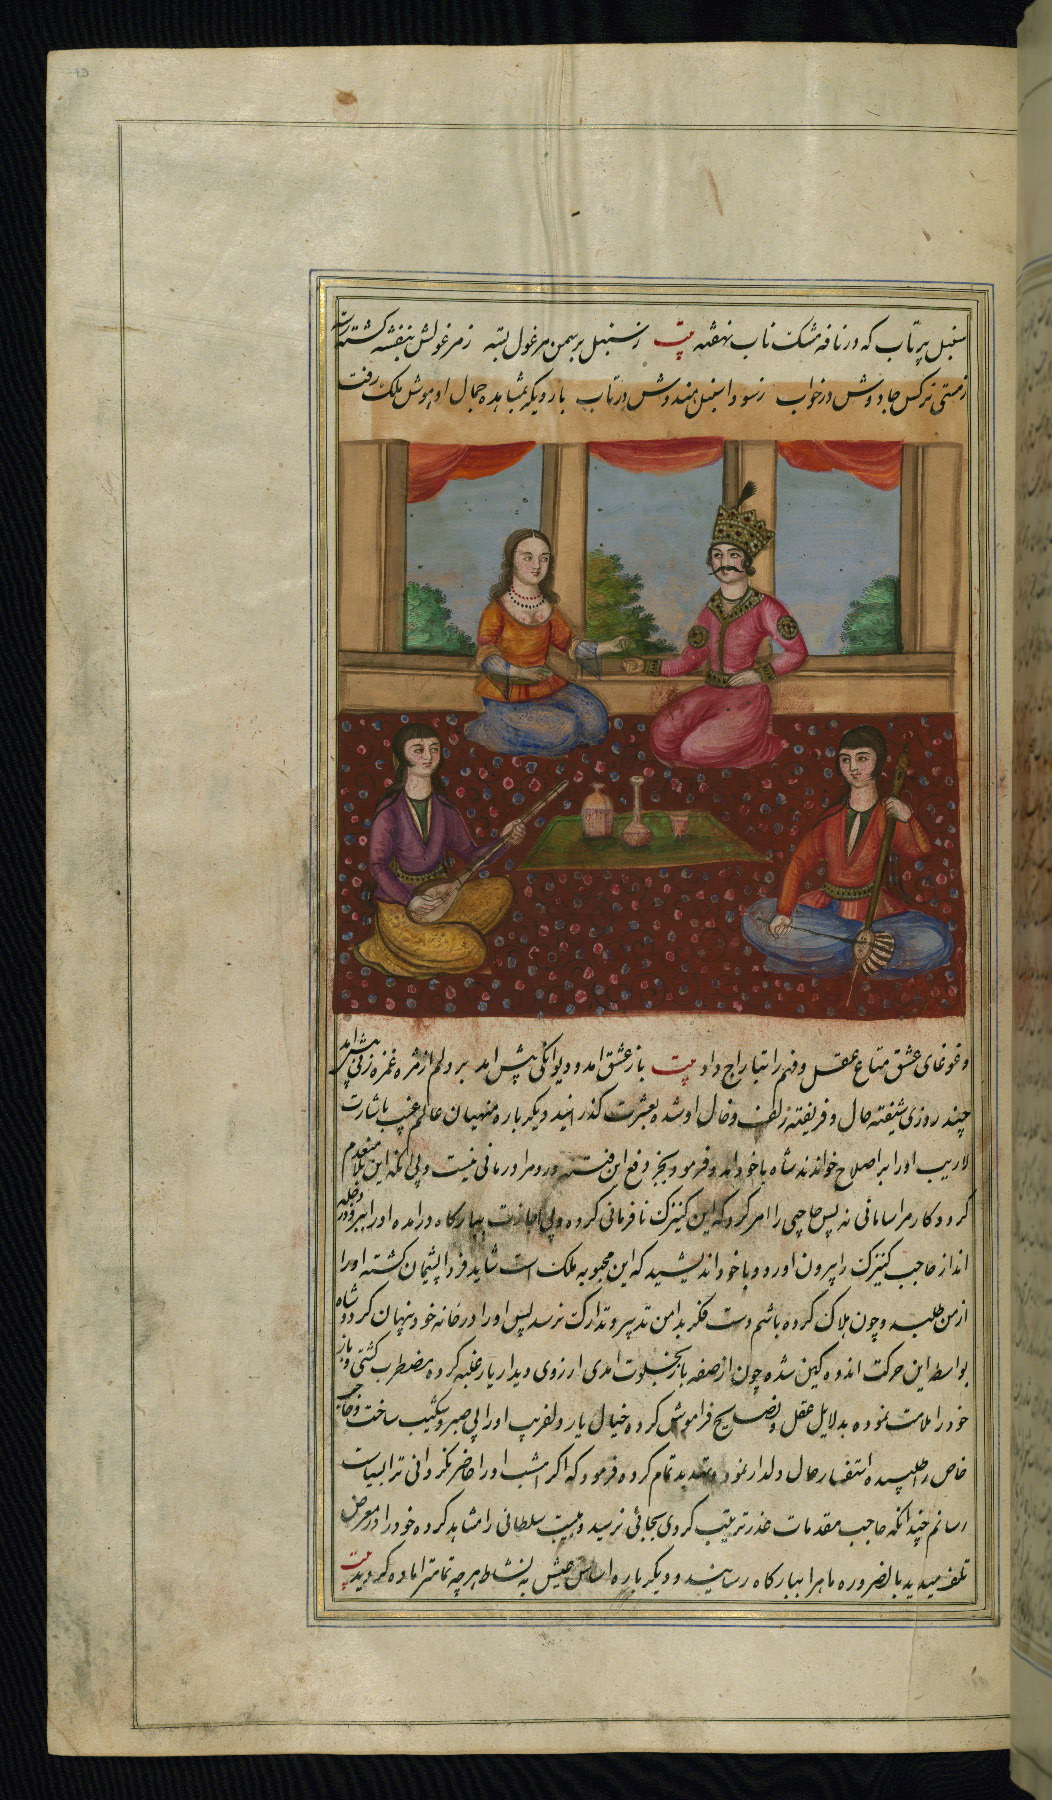 13
سنبل پرتاب که در نافه مشک ناب نهفته بیت ز سنبل بر سمن مرغول بسته ز مرغولش بنفشه کشته
ز مستی نرکس جادوش در خواب ز سودا سنبل هندوش در تاب بار دیکر بمشاهده جمال او هوش ملک رفت
و غوغای عشق متاع عقل و فهم را بتاراج داد بیت باز عشق امد و دیوانکی پیش امد بر دلم از مژه غمزه زنی پیش امد
چند روزی شیفته حال و فریفته زلف و خال او شده بعشرت کذرانید دیکر باره منهیان عالم غیب باشارت
لاریب او را بر اصلاح خواندند شاه با خود و فرمود بجز دفع این فتنه درد مرا درمانی نیست و بی انکه این منعدم
کردد کار مرا سامانی نه پس حاجبی را امر کرد که این کنیزک نافرمانی کرده و بی اجازت ببارکاه درامده او را ببر و در دجله
انداز حاجب کنیزک را بیرون اورد و با خود اندیشید که این محبوبه ملک است شاید فردا پشیمان کشته او را
از من طلبد و چون هلاک کرده باشم دست فکر بدامن تدبیر و تدارک نرسد پس او را در خانه خود پنهان کرد و شاه
بواسطه این حرکت اندوه کین شده چون از صفه بار بخلوت امدی ارزوی دیدار یار غلبه کرده مضطرب کشتی و باز
خود را ملامت نموده بدلایل عقل و فراموش کرده خیال یار دلفریب او را بی صبر و شکیب ساخت و حاجب
خاص را طلبیده استفسار حال دلدار نمود و تهدید تمام کرده فرمود که اکر امشب او را حاضر نکردانی ترا بسیاست
رسانم چندانکه حاجب مقدمات عذر ترتیب کردی بجائی نرسید و هیبت سلطانی را مشاهد کرده خود را در معرض
تلف میدید بالضروره ماهرا ببارکاه رسانید و دیکر باره اساس عیش به نشاط هرچه تمامتر اماده کردید بیت